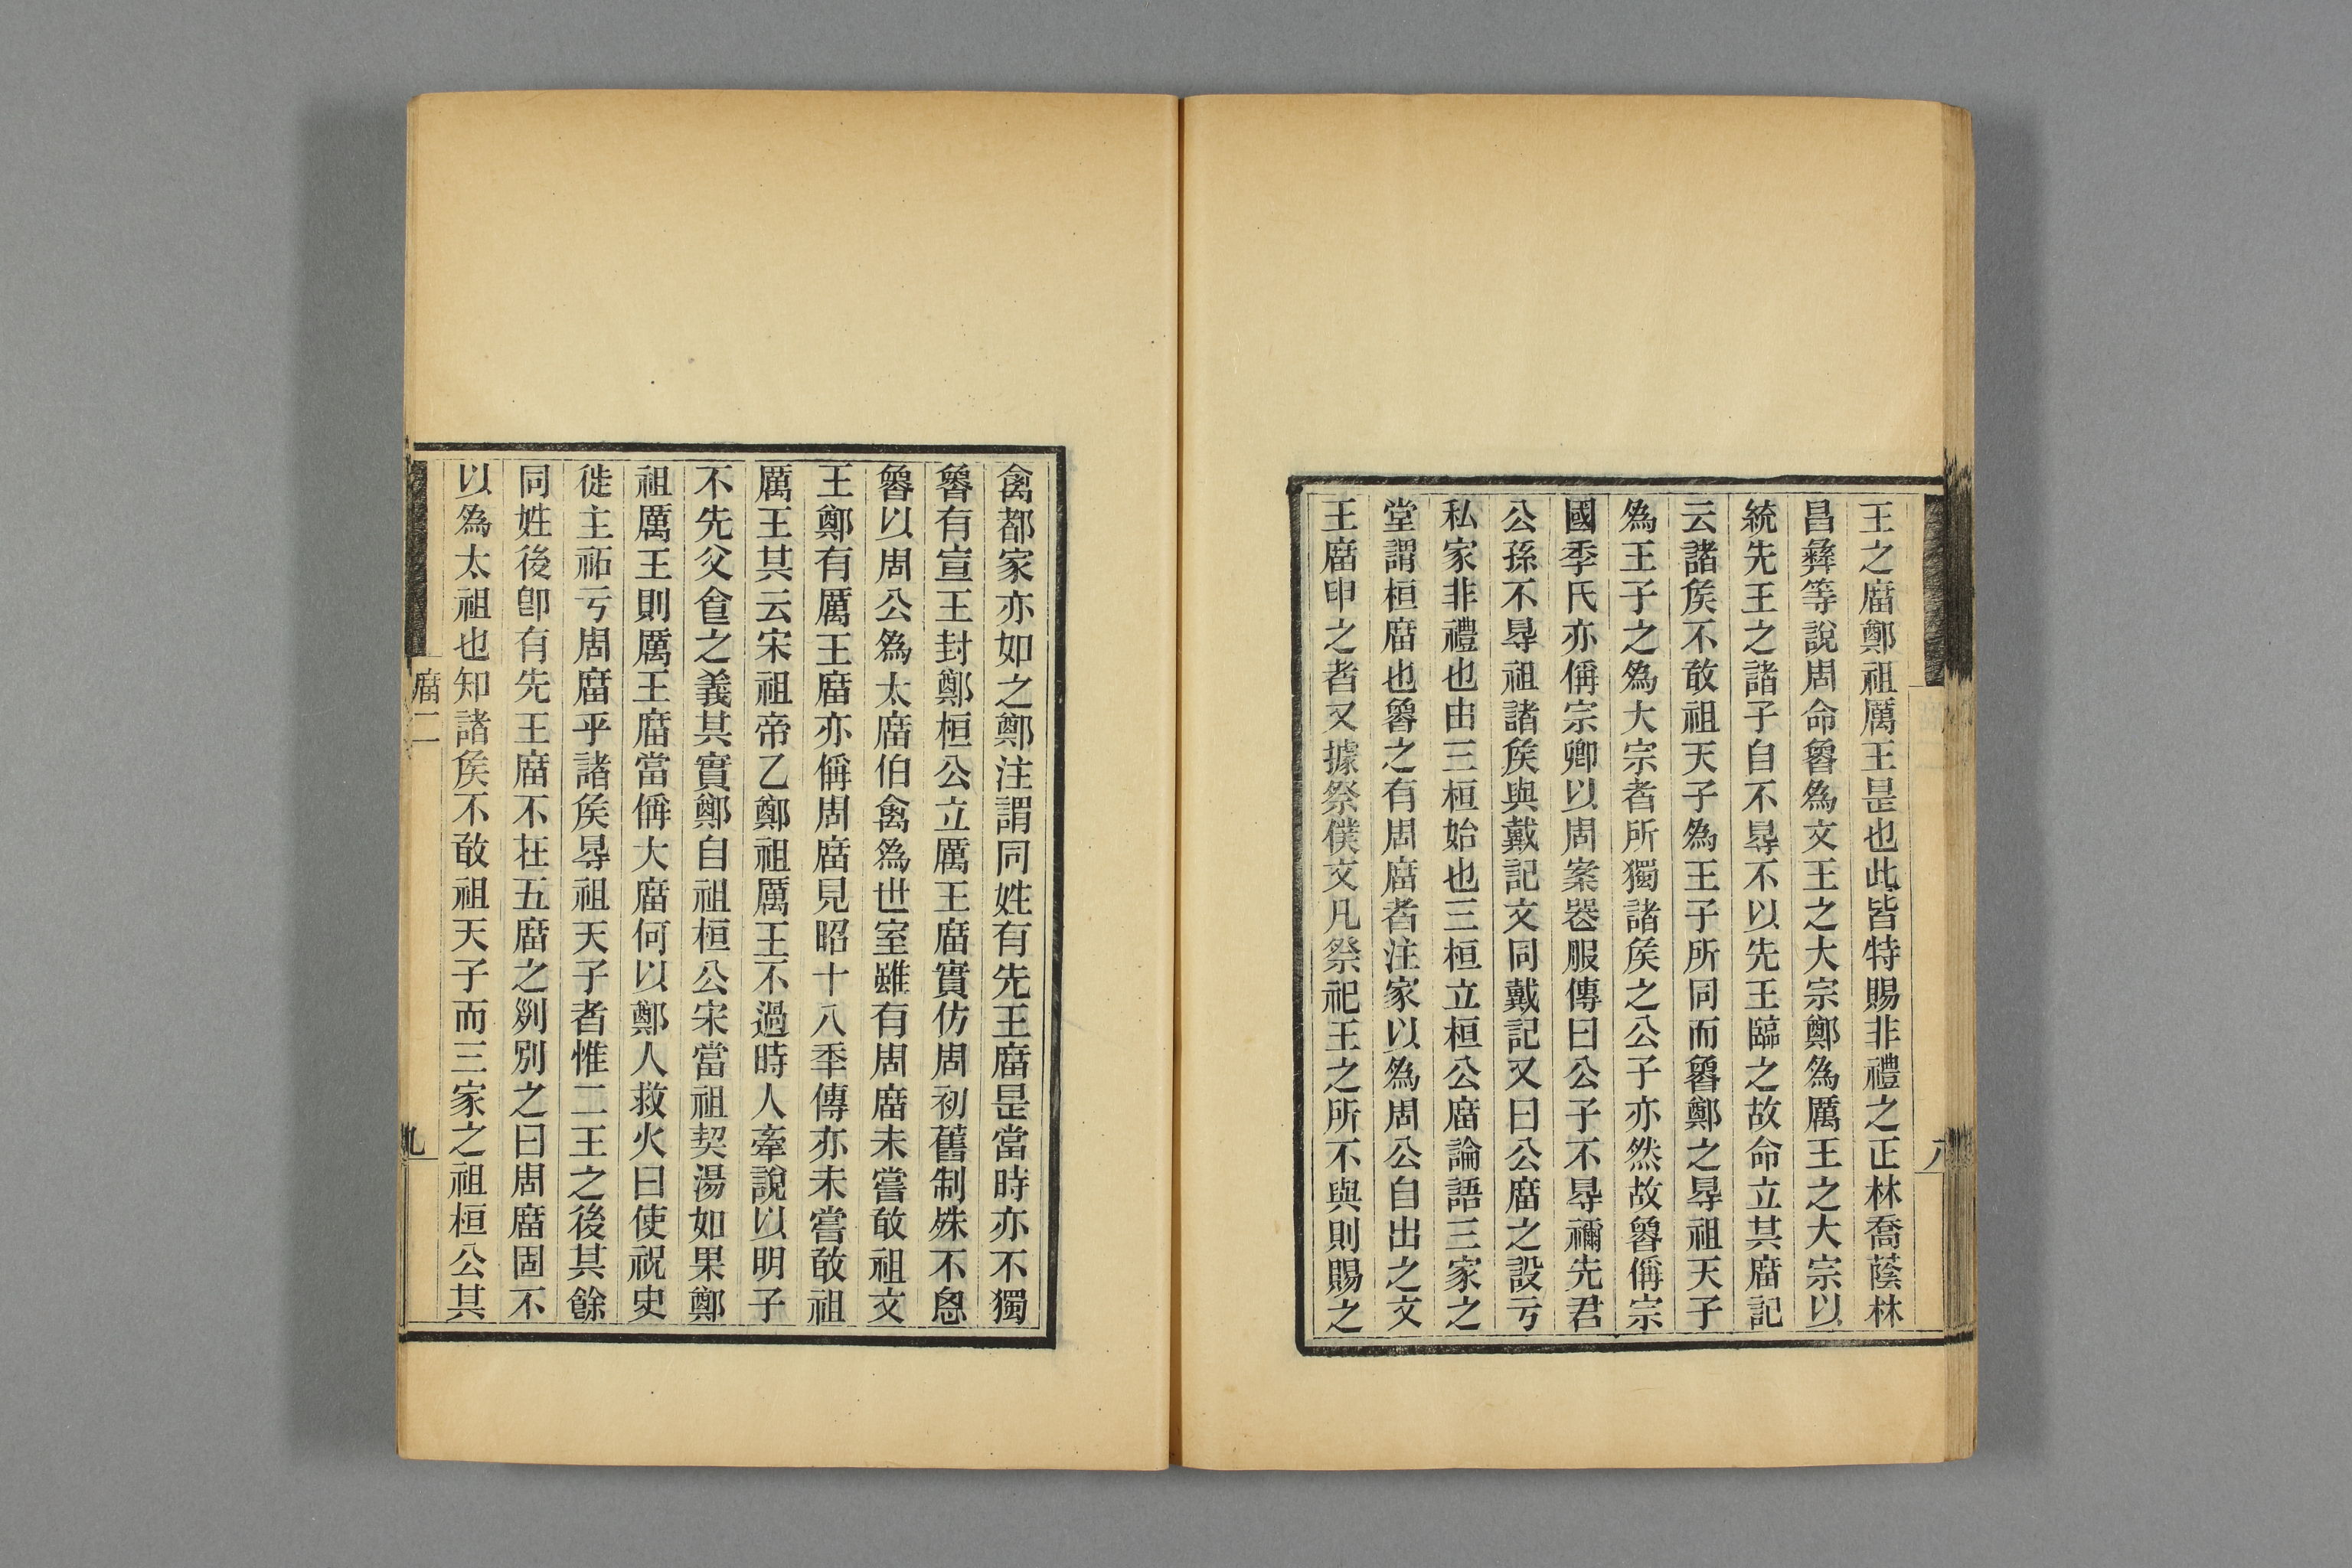 八
王之庿鄭祖厲王昰也此皆特賜非禮之正林喬蔭林
昌彝等說周命魯爲文王之大宗鄭爲厲王之大宗以
統先王之諸子自不䙷不以先王臨之故命立其庿記
云諸矦不敢祖天子爲王子所同而魯鄭之䙷祖天子
爲王子之爲大宗者所獨諸矦之公子亦然故魯偁宗
國季氏亦偁宗卿以周案喪服傳曰公子不䙷禰先君
公孫不䙷祖諸矦與戴記文同戴記又曰公庿之設亏
私家非禮也由三桓始也三桓立桓公庿論語三家之
堂謂桓庿也魯之有周庿者注家以爲周公自出之文
王庿申之者又據祭僕文凡祭祀王之所不與則賜之
禽都家亦如之鄭注謂同姓有先王庿昰當時亦不獨
魯有宣王封鄭桓公立厲王庿實仿周初舊制殊不悤
魯以周公爲太庿伯禽爲世室雖有周庿未嘗敢祖文
王鄭有厲王庿亦偁周庿見昭十八秊傳亦未嘗敢祖
厲王其云宋祖帝乙鄭祖厲王不過時人牽說以明子
不先父食之義其實鄭自祖桓公宋當祖契湯如果鄭
祖厲王則厲王庿當偁大庿何以鄭人救火曰使祝史
徙主祏亏周庿乎諸矦䙷祖天子者惟二王之後其餘
同姓後卽有先王庿不在五庿之列別之曰周庿固不
以爲太祖也知諸矦不敢祖天子而三家之祖桓公其
庿二
九